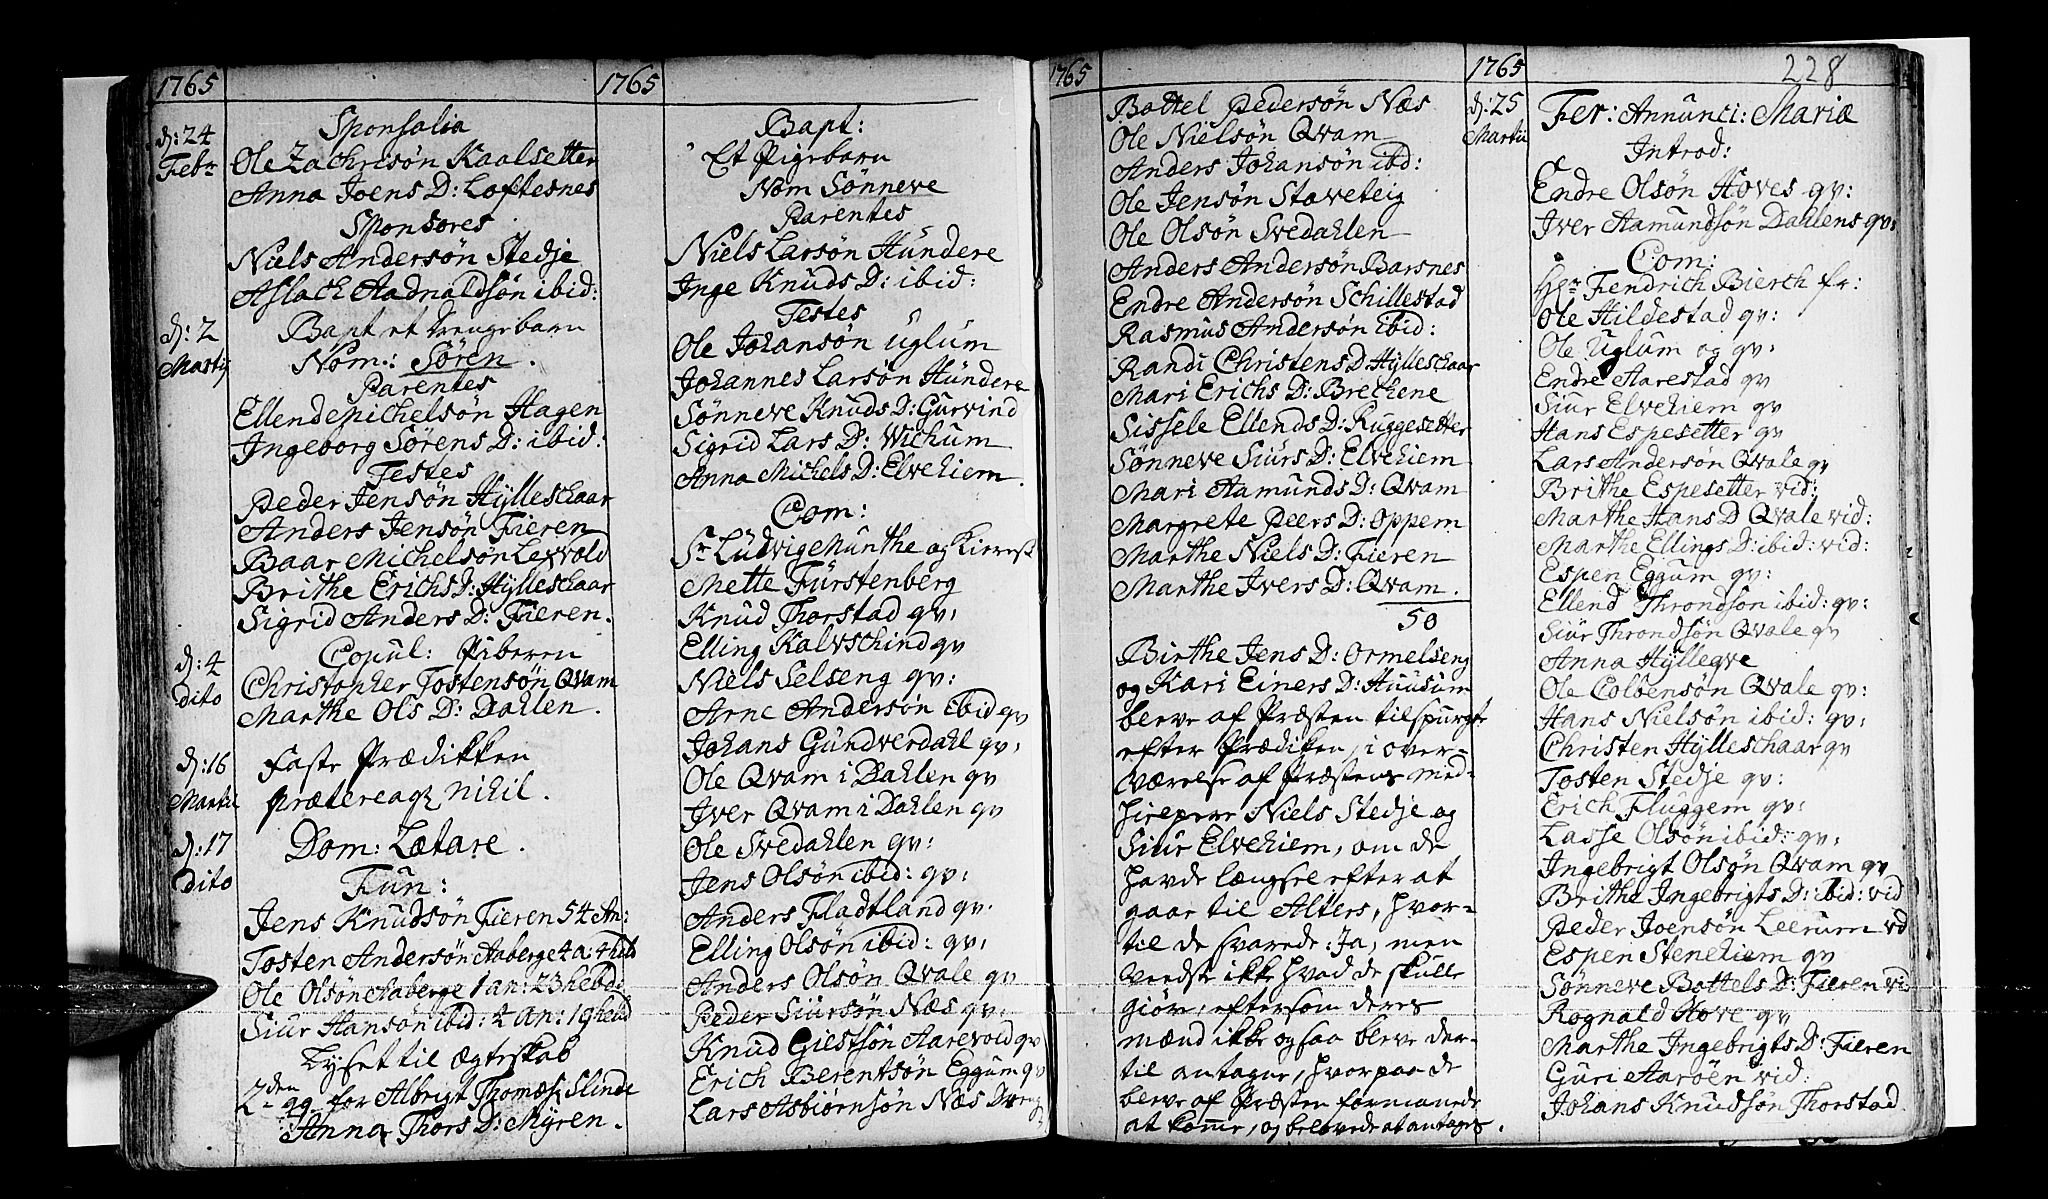 1765
d: 24 Sponsalia
Febr Ole Zachrisøn Kaalsetter
Anna Joens D: Loftesnes
Sponsores
Niels Andersøn Stedje
Aslach Aadnaldsøn ibid:
d: 2 Bapt et Drengebarn
Martij Nom: Søren.
Parentes
Ellend Michelsøn Hagen
Ingeborg Sørens D: ibid:
Testes
Peder Jensøn Hylleschaar
Anders Jensøn Fieren
Baar Michelsøn Lexvold
Brithe Erichs D: Hylleschaar
Sigrid Anders D: Fieren.
d: 4 Copul: Piberen
dito Christopher Tostensøn Qvam
Marthe Ols D: Dahlen.
d: 16 Faste Prædikken
Martii prætereaqz nihil.
d: 17 Dom: Lætare.
dito Fun:
Jens Knudsøn Fieren 54 An:
Tosten Andersøn Aaberge 4 a: 4 heb
Ole Olsøn Aaberge 1 an: 23 hebd
Siur Hansøn ibid: 2 an: 19 hebd
Lyset til Ægteskab
2den gg for Albrigt Thomæs: Slinde
Anna Thors D: Myren.
1765
Bapt:
Et Pigebarn
Nom Sønneve
Parentes
Niels Larsøn Hundere
Inge Knuds D: ibid:
Testes
Ole Johansøn Uglum
Johannes Larsøn Hundere
Sønneve Knuds D: Gurvind
Sigrid Lars D: Wichum
Anna Michels D: Elvehiem.
Com:
Sr Ludvig Munthe og Kiereste
Mette Fürstenberg
Knud Thorstad qv:
Elling Kalvschind qv
Niels Selseng qv:
Arne Andersøn ibid qv
Johans Gundverdahl qv:
Ole Qvam i Dahlen qv
Iver Qvam i Dahlen qv
Ole Svedahlen qv:
Jens Olsøn ibid: qv:
Anders Fladtland qv.
Elling Olsøn ibid: qv:
Anders Olsøn Qvale qv
Peder Siursøn Næs qv:
Knud Giestsøn Aarevold qv
Erich Berentsøn Eggum qv
Lars Asbiørnsøn Næs Dreng
1765
Bottel Pedersøn Næs
Ole Nielsøn Qvam
Anders Johansøn ibd:
Ole Jensøn Staveteig
Ole Olsøn Svedahlen
Anders Andersøn Barsnes
Endre Andersøn Schillestad
Rasmus Andersøn ibid:
Randi Christens D: Hylleschaar
Mari Erichs D: Brechene
Sissele Ellends D: Ruggesetter
Sønneve Siurs D: Elvehiem
Mari Aamunds D: Qvam
Margrete Peers D: Oppem
Marthe Niels D: Fieren
Marthe Ivers D: Qvam.
50
Birthe Jens D: Ormelseng
og Kari Einers D: Huusum
bleve af Præsten tilspurgte
efter Prædiken, i over-
værelse af Præstens Med-
hielpere Niels Stedje og
Siur Elvehiem, om de
havde længsel efter at
gaar til Alters, hvor-
til de svarede: Ja, men
vedste ikke hvad de skulle
giøre, eftersom deres
mænd ikke ogsaa bleve der-
til antagne, hvorpaa de
bleve af Præsten formanede
at komme, og belovede at antages.
1765 228
d: 25 Fer: Annunci: Mariæ
Martii Introd:
Endre Olsøn Hoves qv:
Iver Aamundsøn Dahlens qv:
Com:
Hr Fendrich Bierch fr:
Ole Hildestad qv:
Ole Uglum og qv:
Endre Aarestad qv
Siur Elvehiem qv
Hans Espesetter qv
Lars Andersøn Qvale qv
Brithe Espesetter vid:
Marthe Hans D Qvale vid:
Marthe Ellings D: ibid: vid:
Espen Eggum qv:
Ellend Throndson ibid: qv:
Siur Throndsøn Qvale qv
Anna Hyllegve
Ole Colbensøn Qvale qv:
Hans Nielsøn ibid: qv:
Christen Hylleschaar qv
Tosten Stedje qv:
Erich Fluggem qv:
Lasse Olsøn ibid: qv:
Ingebrigt Olsøn Qvam qv
Brithe Ingebrigts D: ibid: vid
Peder Joensøn Leerum vd
Espen Stenehiem qv
Sønneve Bottels D: Fieren vi
Rognald Hove qv
Marthe Ingebrigts D: Fieren
Guri Aarøen vid:
Johans Knudsøn Thorstad